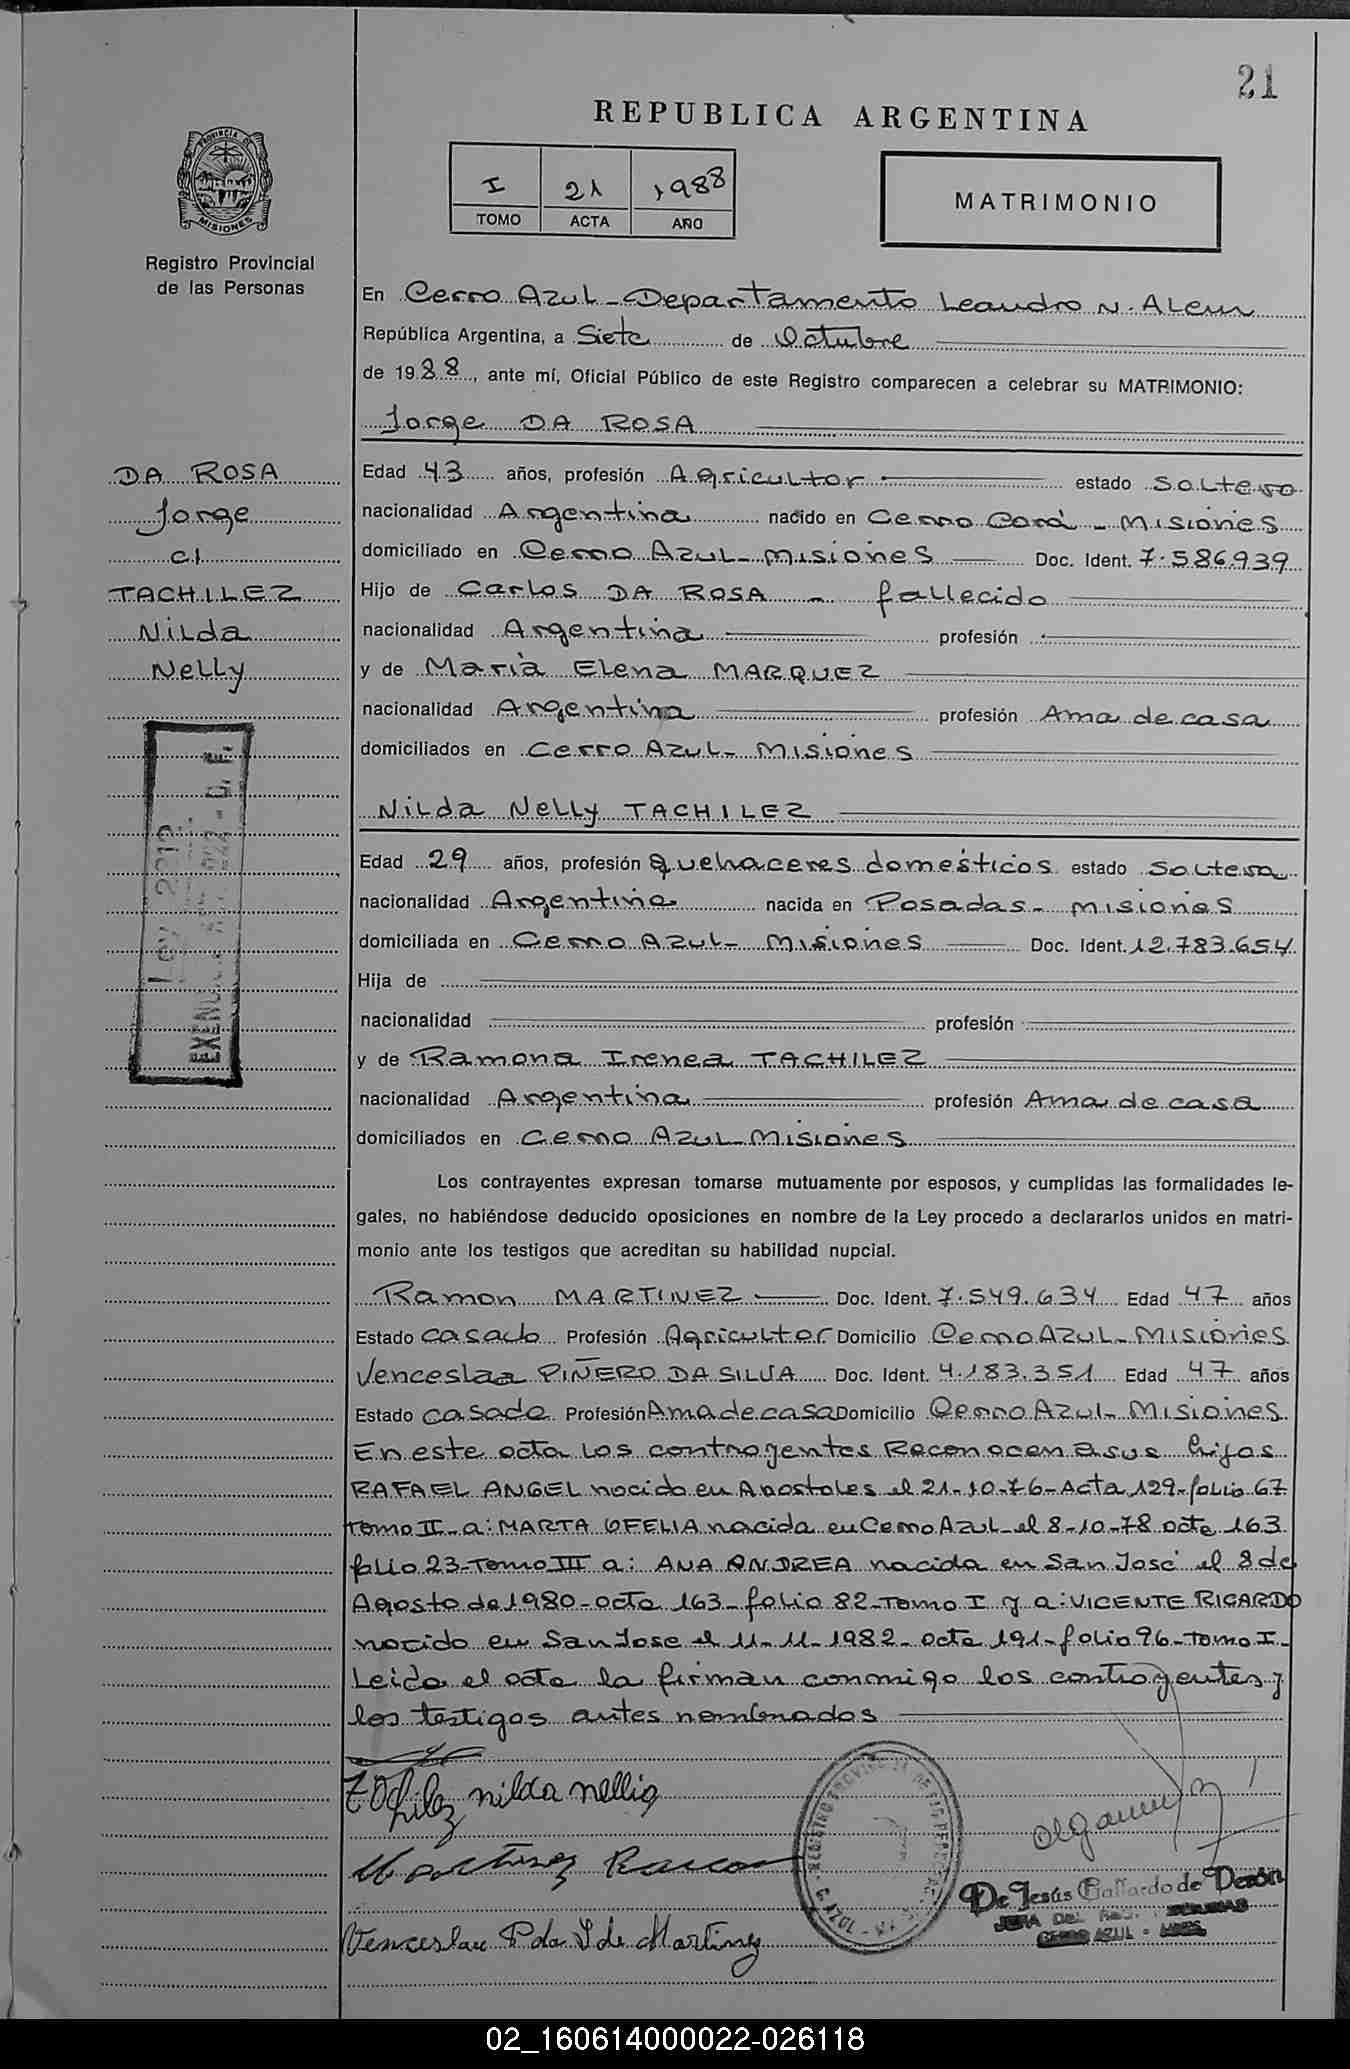 21
REPUBLICA ARGENTINA
PROVINCIA DE
MISIONES
Registro Provincial
de las Personas
I 21 1988
TOMO ACTA AÑO
MATRIMONIO
En Cerro Azul - Departamento Leandro N. Alem
República Argentina, a Siete de Octubre
de 1988, ante mí, Oficial Público de este Registro comparecen a celebrar su MATRIMONIO:
Jorge DA ROSA
DA ROSA
Jorge
c/
TACHILEZ
Nilda
Nelly
Edad 43 años, profesión Agricultor estado Soltero
nacionalidad Argentina nacido en Cerro Corá - Misiones
domiciliado en Cerro Azul - Misiones Doc. Ident. 7.586.939
Hijo de Carlos DA ROSA - fallecido
nacionalidad Argentina profesión
y de María Elena MARQUEZ
nacionalidad Argentina profesión Ama de casa
domiciliados en Cerro Azul - Misiones
Nilda Nelly TACHILEZ
Edad 29 años, profesión Quehaceres domésticos estado Soltera
nacionalidad Argentina nacida en Posadas - Misiones
domiciliada en Cerro Azul - Misiones Doc. Ident. 12.783.654
Hija de
nacionalidad profesión
y de Ramona Irenea TACHILEZ
nacionalidad Argentina profesión Ama de casa
domiciliados en Cerro Azul - Misiones
Ley 2212
EXEN
Los contrayentes expresan tomarse mutuamente por esposos, y cumplidas las formalidades le-
gales, no habiéndose deducido oposiciones en nombre de la Ley procedo a declararlos unidos en matri-
monio ante los testigos que acreditan su habilidad nupcial.
Ramon MARTINEZ Doc. Ident. 7.549.634 Edad 47 años
Estado casado Profesión Agricultor Domicilio Cerro Azul - Misiones
Venceslaa PIÑERO DA SILVA Doc. Ident. 4.183.351 Edad 47 años
Estado casada Profesión Ama de casa Domicilio Cerro Azul - Misiones
En este acta los contrayentes Reconocen a sus hijos
RAFAEL ANGEL nacido en Apostoles el 21-10-76 - Acta 129 - folio 67
Tomo II - a: MARTA OFELIA nacida en Cerro Azul - el 8-10-78 acta 163
folio 23 - Tomo III a: ANA ANDREA nacida en San José el 8 de
Agosto de 1980 - acta 163 - folio 82 - Tomo I y a: VICENTE RICARDO
nacido en San Jose el 11-11-1982 - acta 191 - folio 96 - Tomo I.
Leida el acta la firman conmigo los contrayentes y
los testigos antes nombrados
nilda nellig
Martinez Ramon
Venceslaa P. da S. de Martinez
De Jesús Gallardo de Perón
JEFA DEL REG.
CERRO AZUL - MNES.
02_160614000022-026118